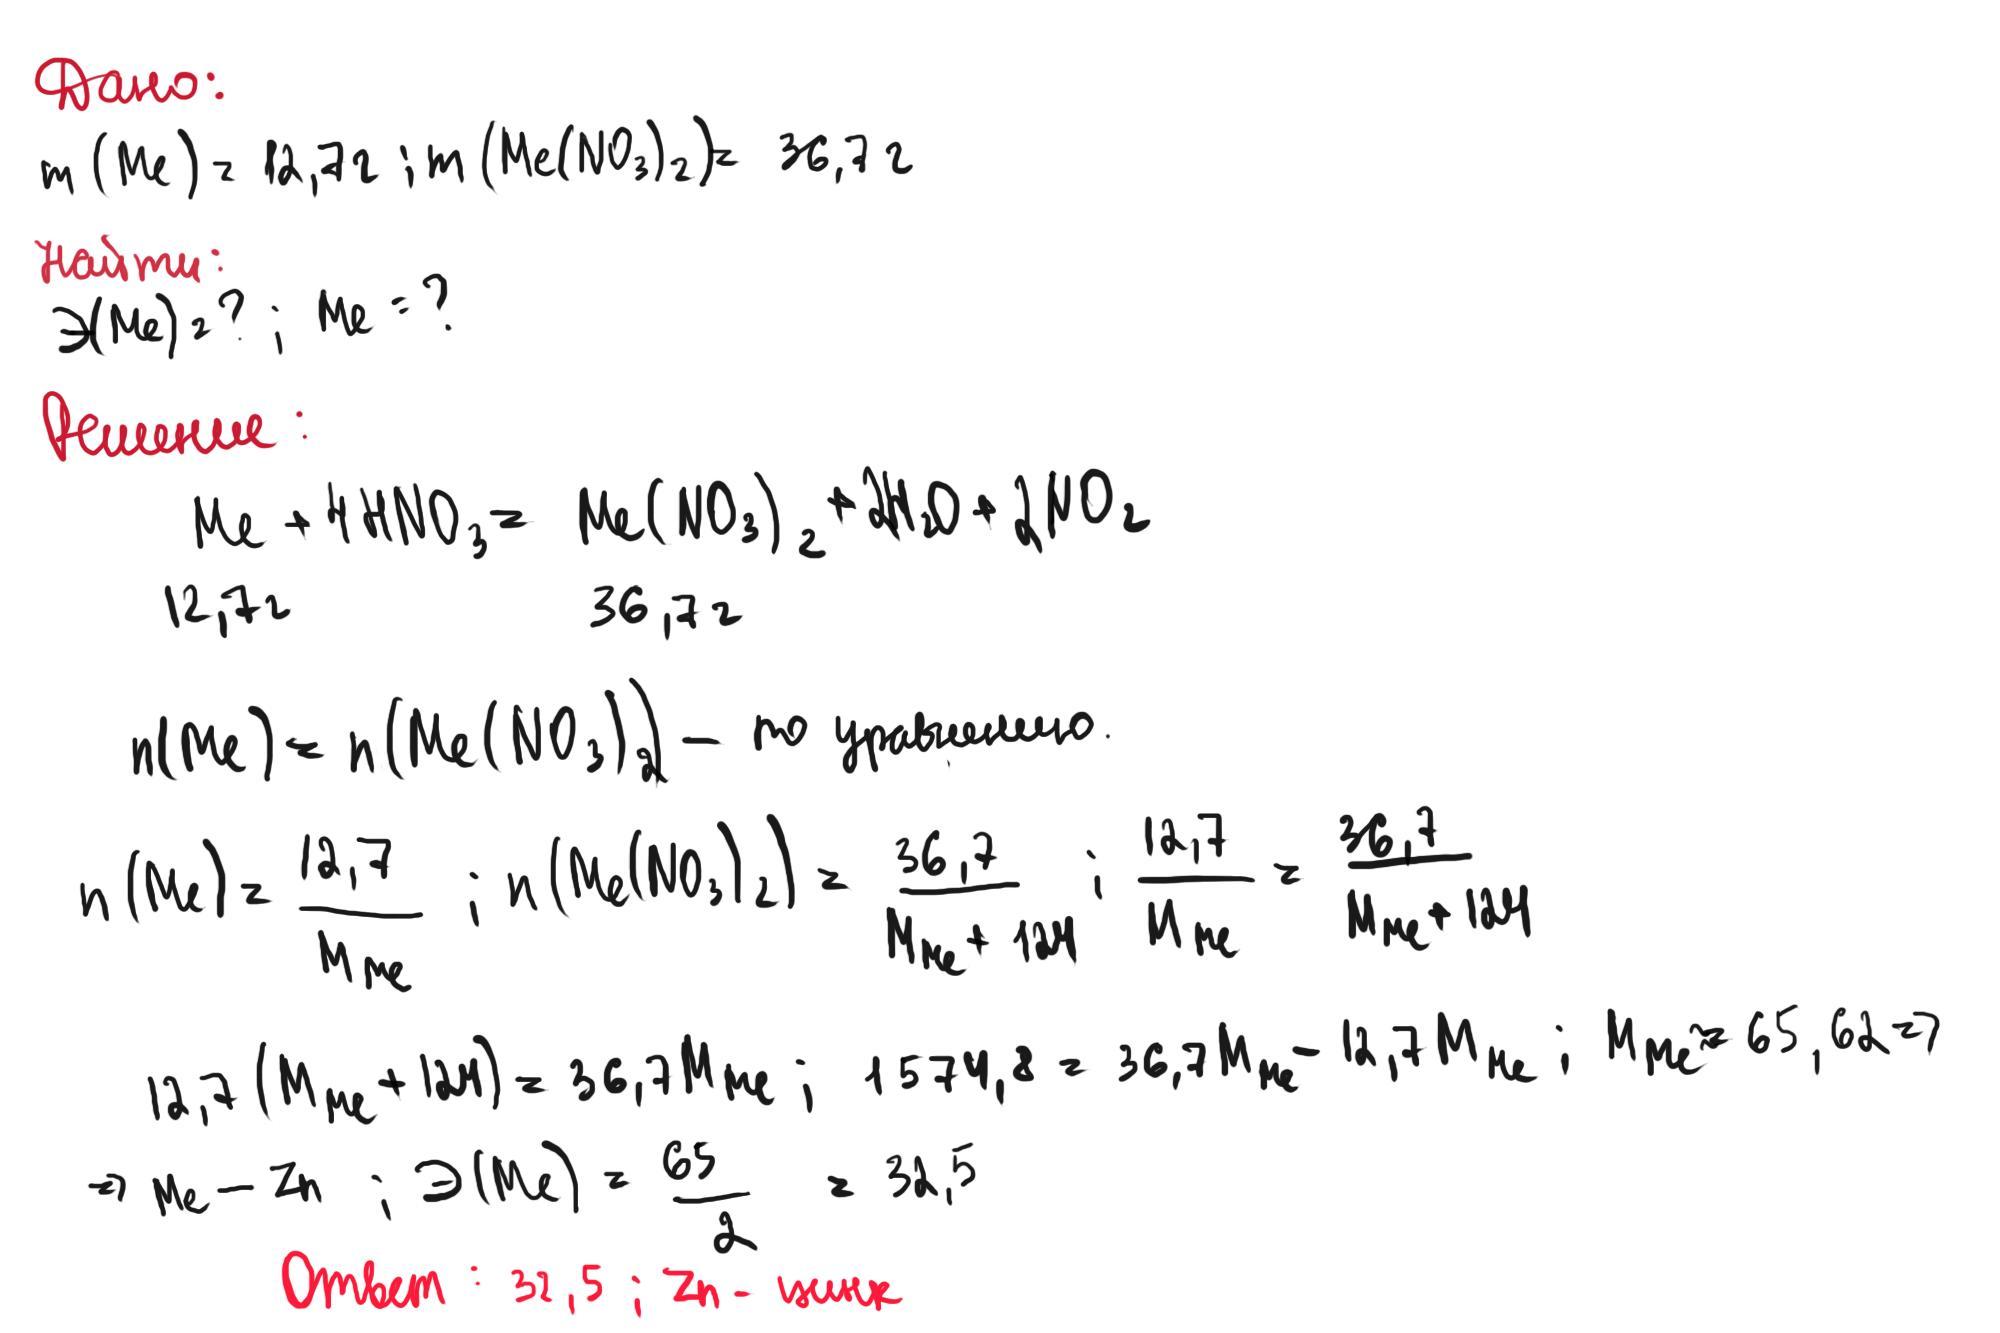 Дано:
m (Me) = 12,7г ; m (Me(NO₃)₂) = 36,7г
Найти:
Э(Me) = ? ; Me = ?
Решение :
Me + 4HNO₃ = Me(NO₃)₂ + 2H₂O + 2NO₂
12,7г 36,7г
n(Me) = n(Me(NO₃)₂ – по уравнению.
n(Me) = 12,7/M Me ; n(Me(NO₃)₂) = 36,7/(M Me + 124) ; 12,7/M Me = 36,7/(M Me + 124)
12,7 (M Me + 124) = 36,7 M Me ; 1574,8 = 36,7 M Me – 12,7 M Me ; M Me ≈ 65,62 =>
=> Me – Zn ; Э(Me) = 65/2 = 32,5
Ответ : 32,5 ; Zn - цинк